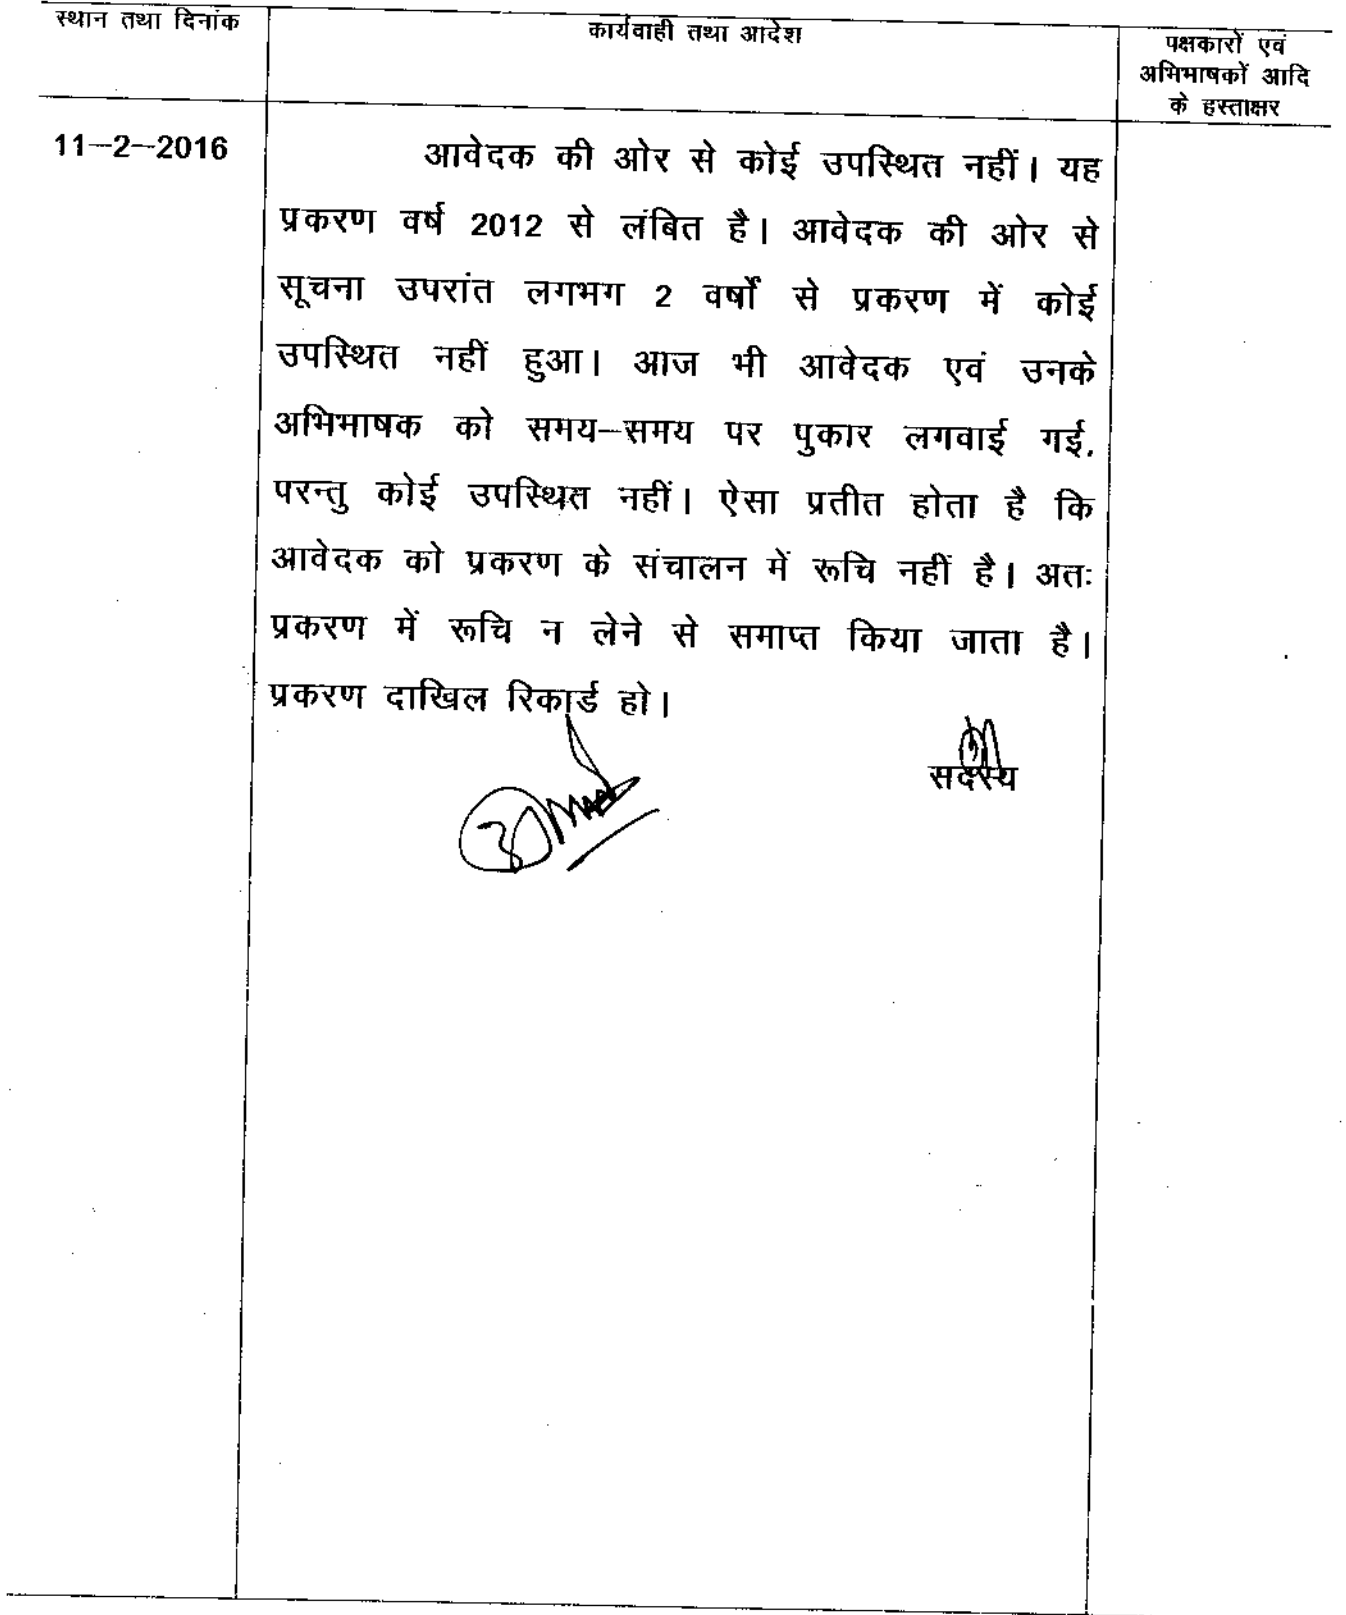 स्थान तथा दिनांक
कार्यवाही तथा आदेश
पक्षकारों एवं
अभिभाषकों आदि
के हस्ताक्षर
11-2-2016
आवेदक की ओर से कोई उपस्थित नहीं। यह
प्रकरण वर्ष 2012 से लंबित है। आवेदक की ओर से
सूचना उपरांत लगभग 2 वर्षों से प्रकरण में कोई
उपस्थित नहीं हुआ। आज भी आवेदक एवं उनके
अभिभाषक को समय-समय पर पुकार लगवाई गई,
परन्तु कोई उपस्थित नहीं। ऐसा प्रतीत होता है कि
आवेदक को प्रकरण के संचालन में रूचि नहीं है। अतः
प्रकरण में रूचि न लेने से समाप्त किया जाता है।
प्रकरण दाखिल रिकार्ड हो।
सदस्य